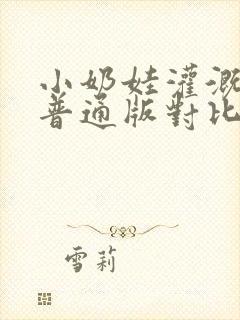 小奶娃灌溉
普通版對比
雪莉